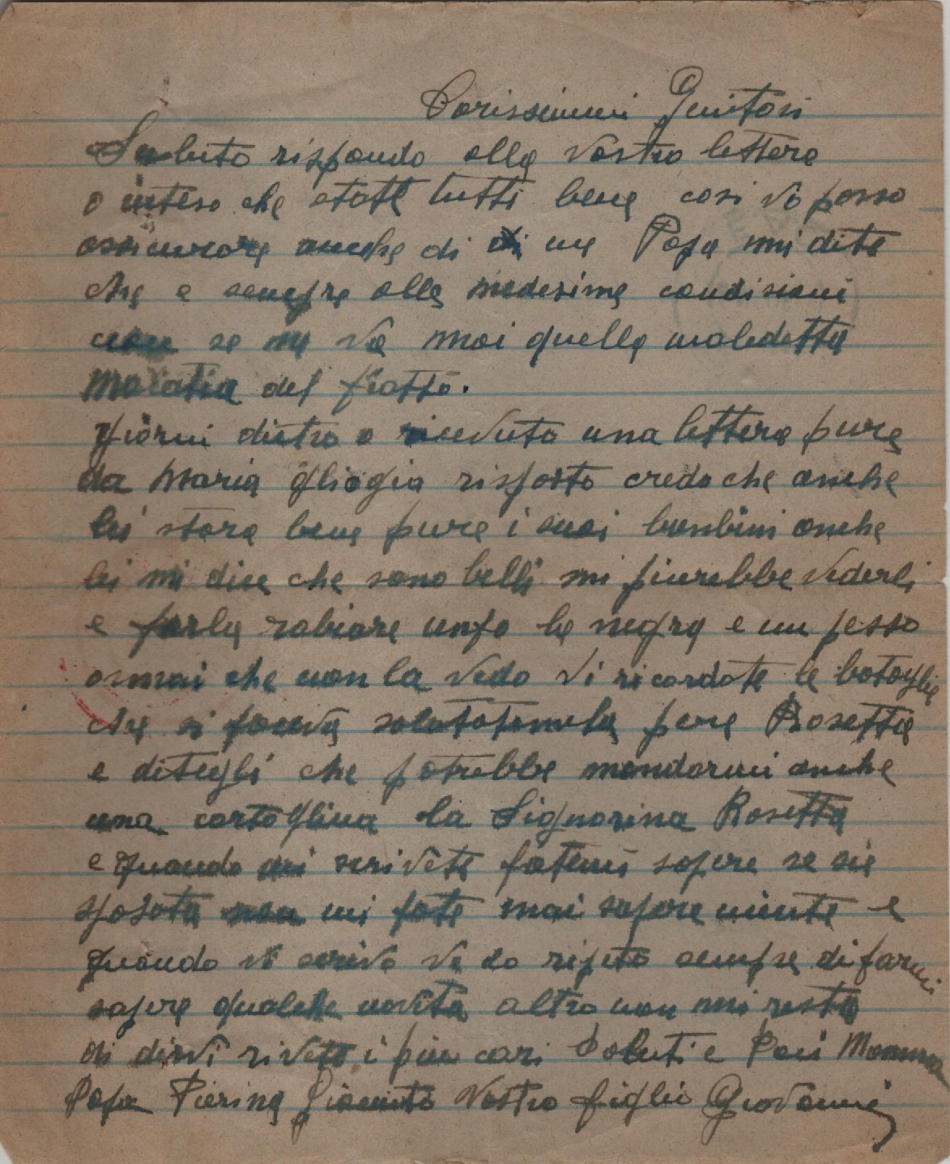 Carissimmi Genitori
Subito rispondo alla vostra lettera
o inteso che state tutti bene cosi vi posso
assicurare anche di di me Papa mi dite
che e sempre alle medesime condisioni
non se ne va mai quella maledetta
malatia del fiatto.
Giorni dietro o ricevuto una lettera pure
da Maria gliogia risposto credo che anche
lei stara bene pure i suoi bambini anche
lei mi dice che sono belli mi piacrebbe vederli
e farla rabiare unpo la negra e un pesso
ormai che non la vedo vi ricordate le bataglie
che si faceva salutatemela pure Rosetta
e ditegli che potrebbe mandarmi anche
una cartoglina la Signorina Rosetta
e quando mi scrivete fatemi sapere se sie
sposata non mi fate mai sapere niente e
quando vi scrivo ve lo ripeto sempre di farmi
sapere qualche novita altro non mi resta
di dirvi riveto i piu cari Saluti e Baci Mamma
Papa Pierina Giacinto Vostro figlio Giovanni